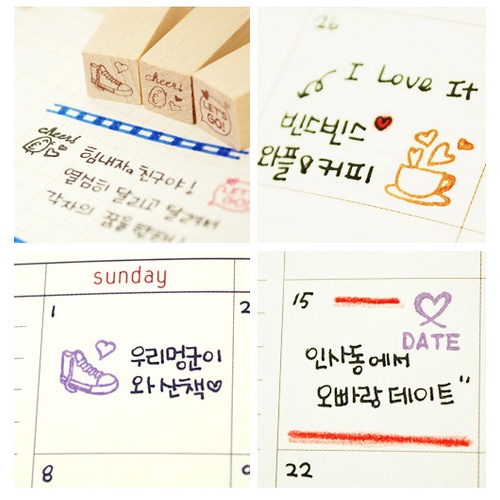 cheer!
LET'S GO!
cheer!
힘내자a 친구야!
열심히 달리고 달려서
LET'S GO!
각자의 꿈을
26
I Love It
빈스빈스
와플&커피
sunday
1
2
우리멍군이
와 산책
8
15
DATE
인사동에서
오빠랑 데이트"
22